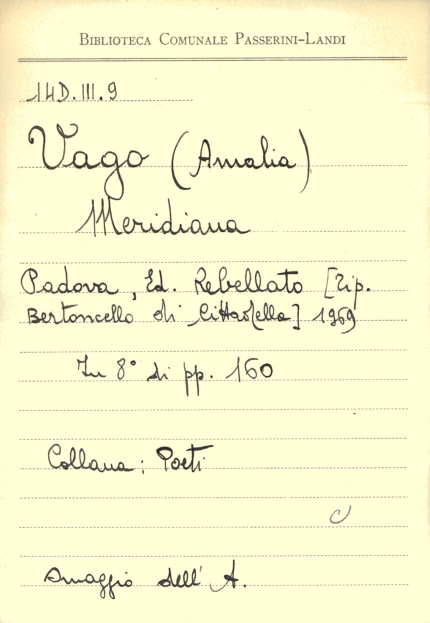 BIBLIOTECA COMUNALE PASSERINI-LANDI
14D.III.9
Vago (Amalia)
Meridiana
Padova, Ed. Rebellato [Tip.
Bertoncello di Cittadella] 1969
In 8° di pp. 160
Collana: Poeti
C
Omaggio dell'A.